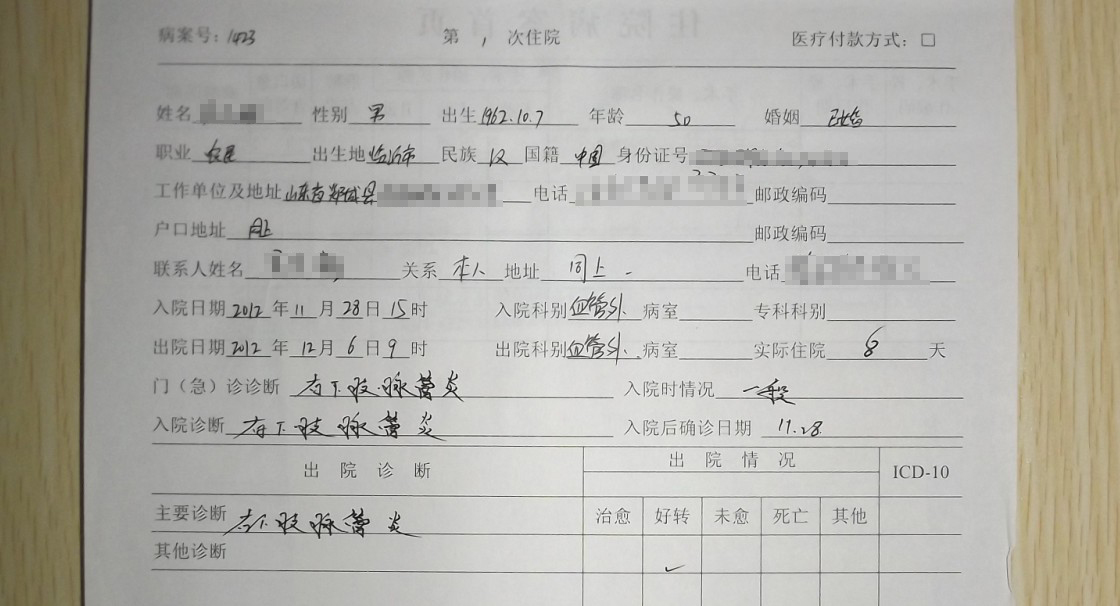 病案号：1423 第 1 次住院 医疗付款方式：□
姓名 性别 男 出生 1962.10.7 年龄 50 婚姻 已婚
职业 农民 出生地 临沂市 民族 汉 国籍 中国 身份证号
工作单位及地址 山东省郯城县 电话 邮政编码
户口地址 同上 邮政编码
联系人姓名 关系 本人 地址 同上 电话
入院日期 2012 年 11 月 28 日 15 时 入院科别 血管外 病室 专科科别
出院日期 2012 年 12 月 6 日 9 时 出院科别 血管外 病室 实际住院 8 天
门（急）诊诊断 右下肢脉管炎 入院时情况 一般
入院诊断 右下肢脉管炎 入院后确诊日期 11.28
出院诊断 出院情况 ICD-10
主要诊断 右下肢脉管炎 治愈 好转 未愈 死亡 其他
其他诊断